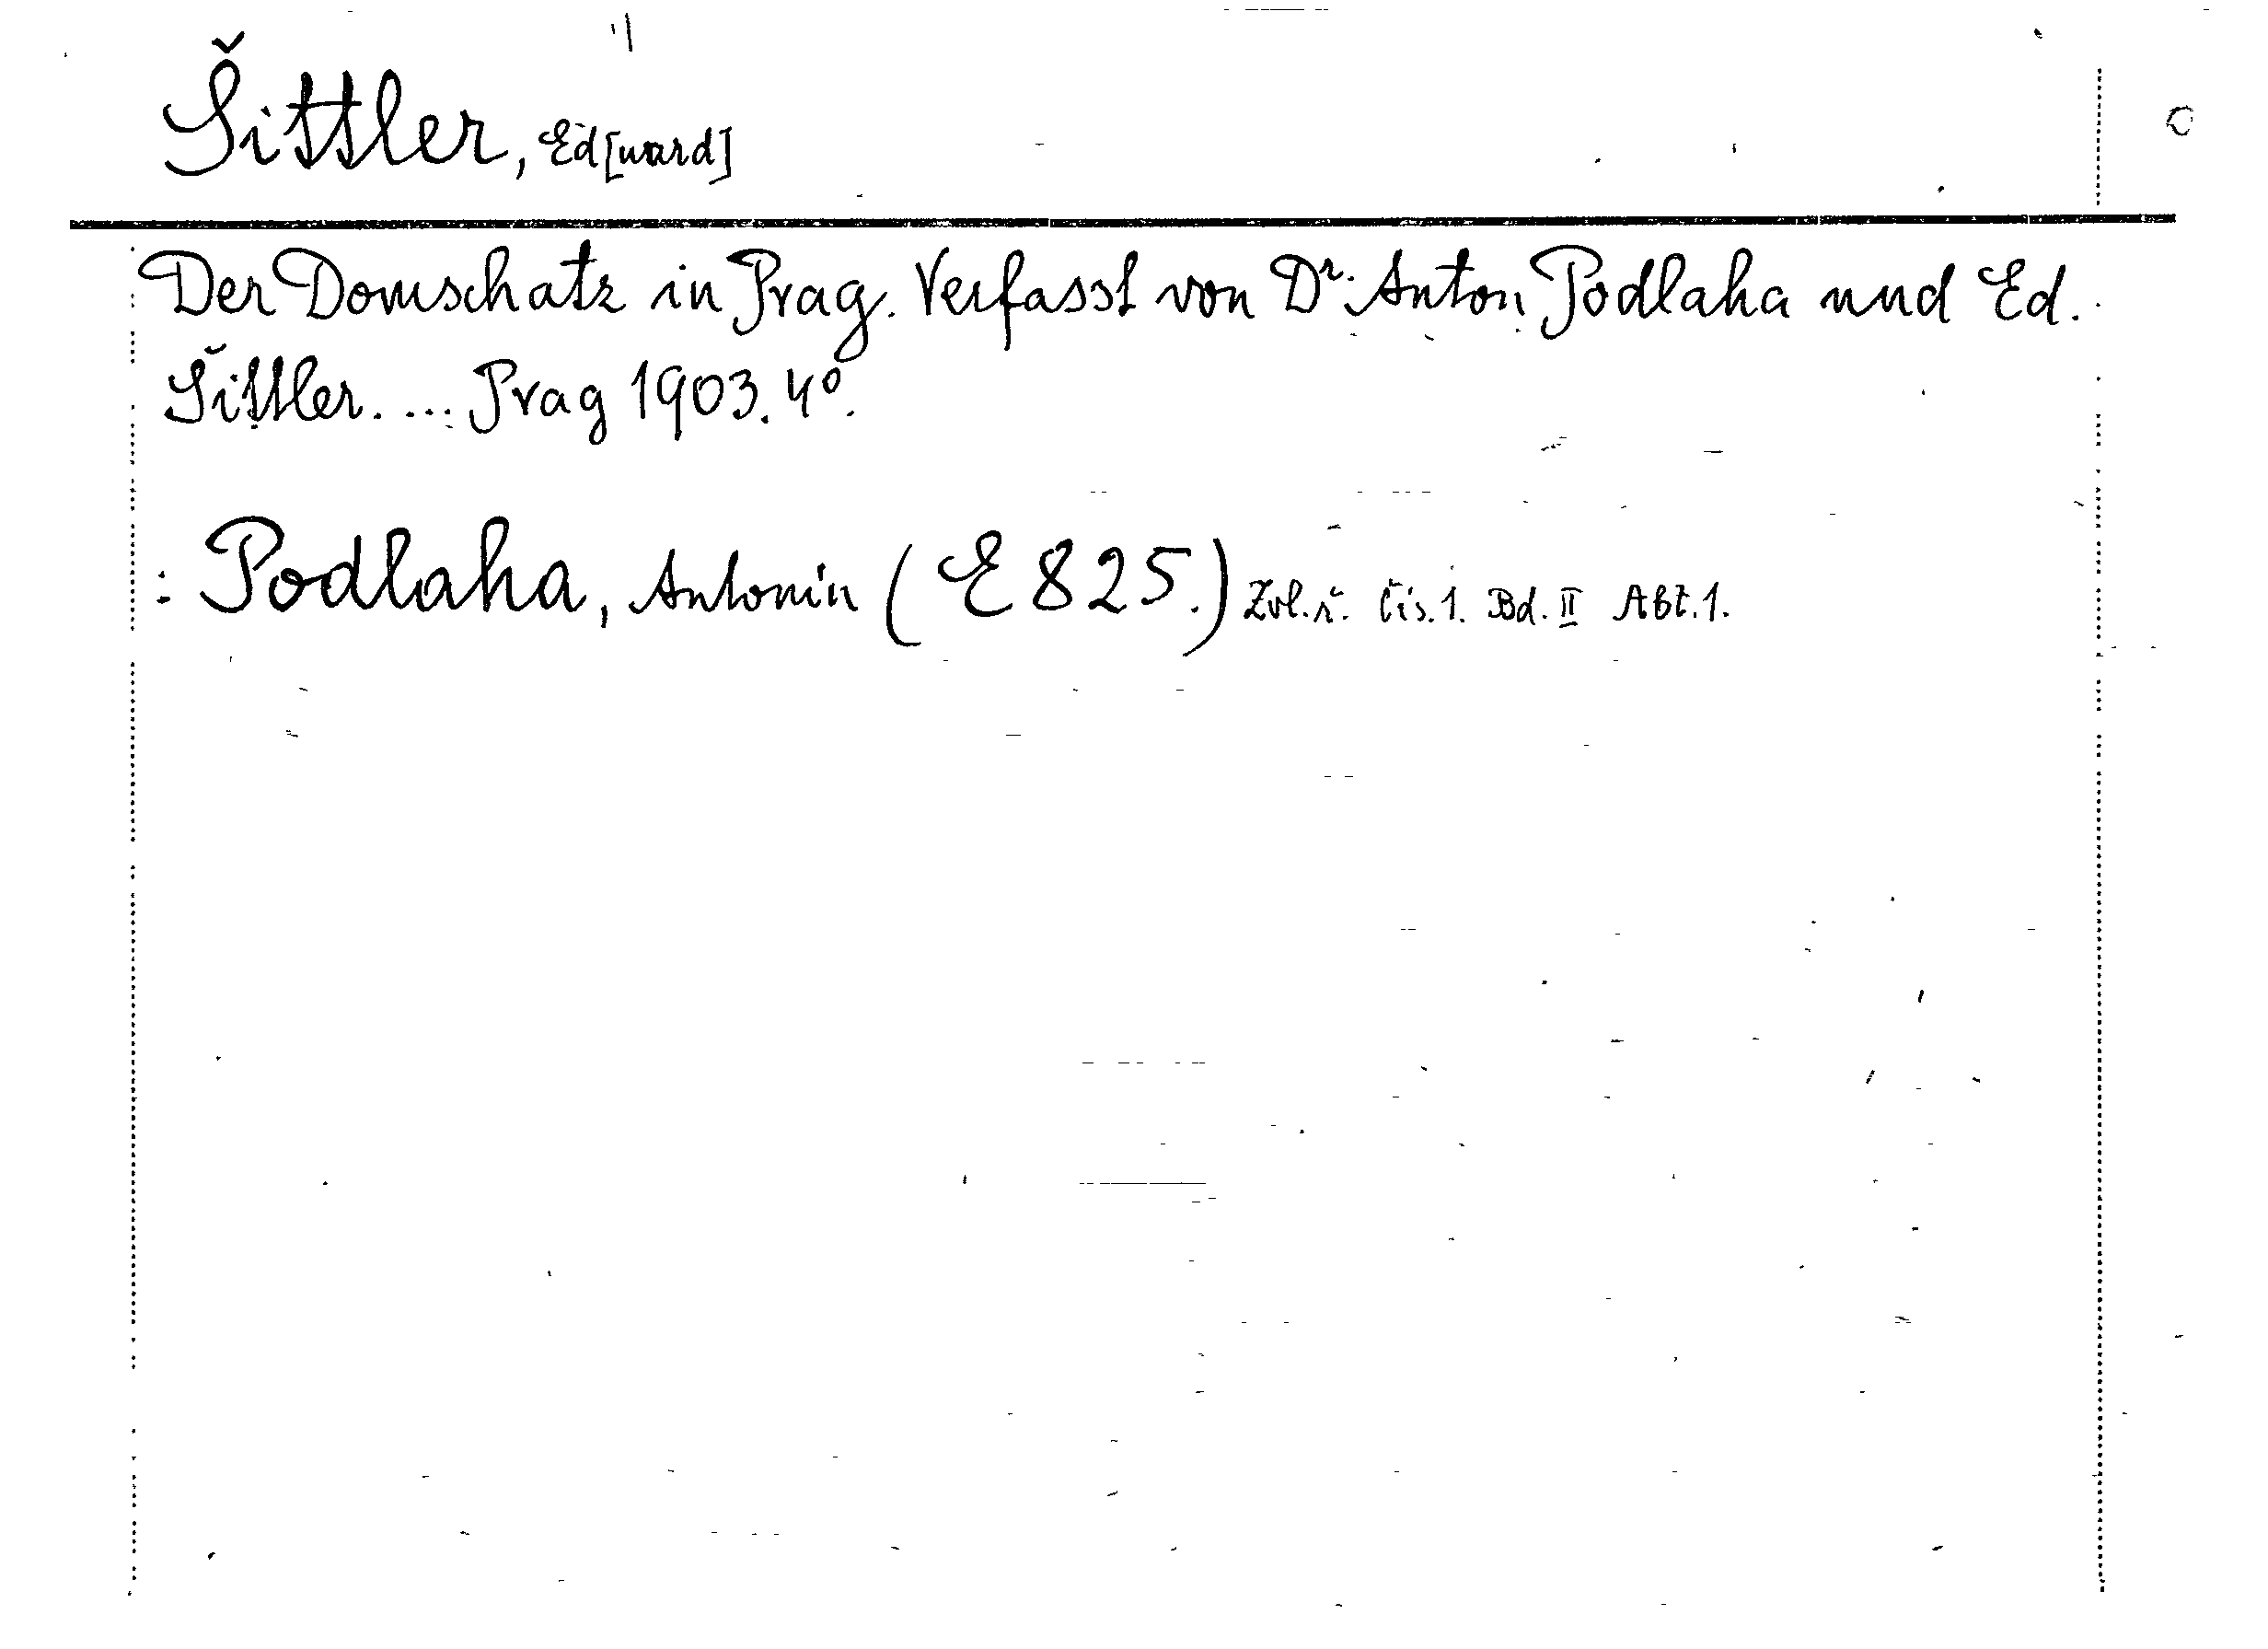 Šittler, Ed[uard]
Der Domschatz in Prag. Verfasst von Dr. Anton Podlaha und Ed.
Šittler. ... Prag 1903. 4º.
: Podlaha, Antonín (E 825.) Zvl. ř. Čís. 1. Bd. II Abt. 1.